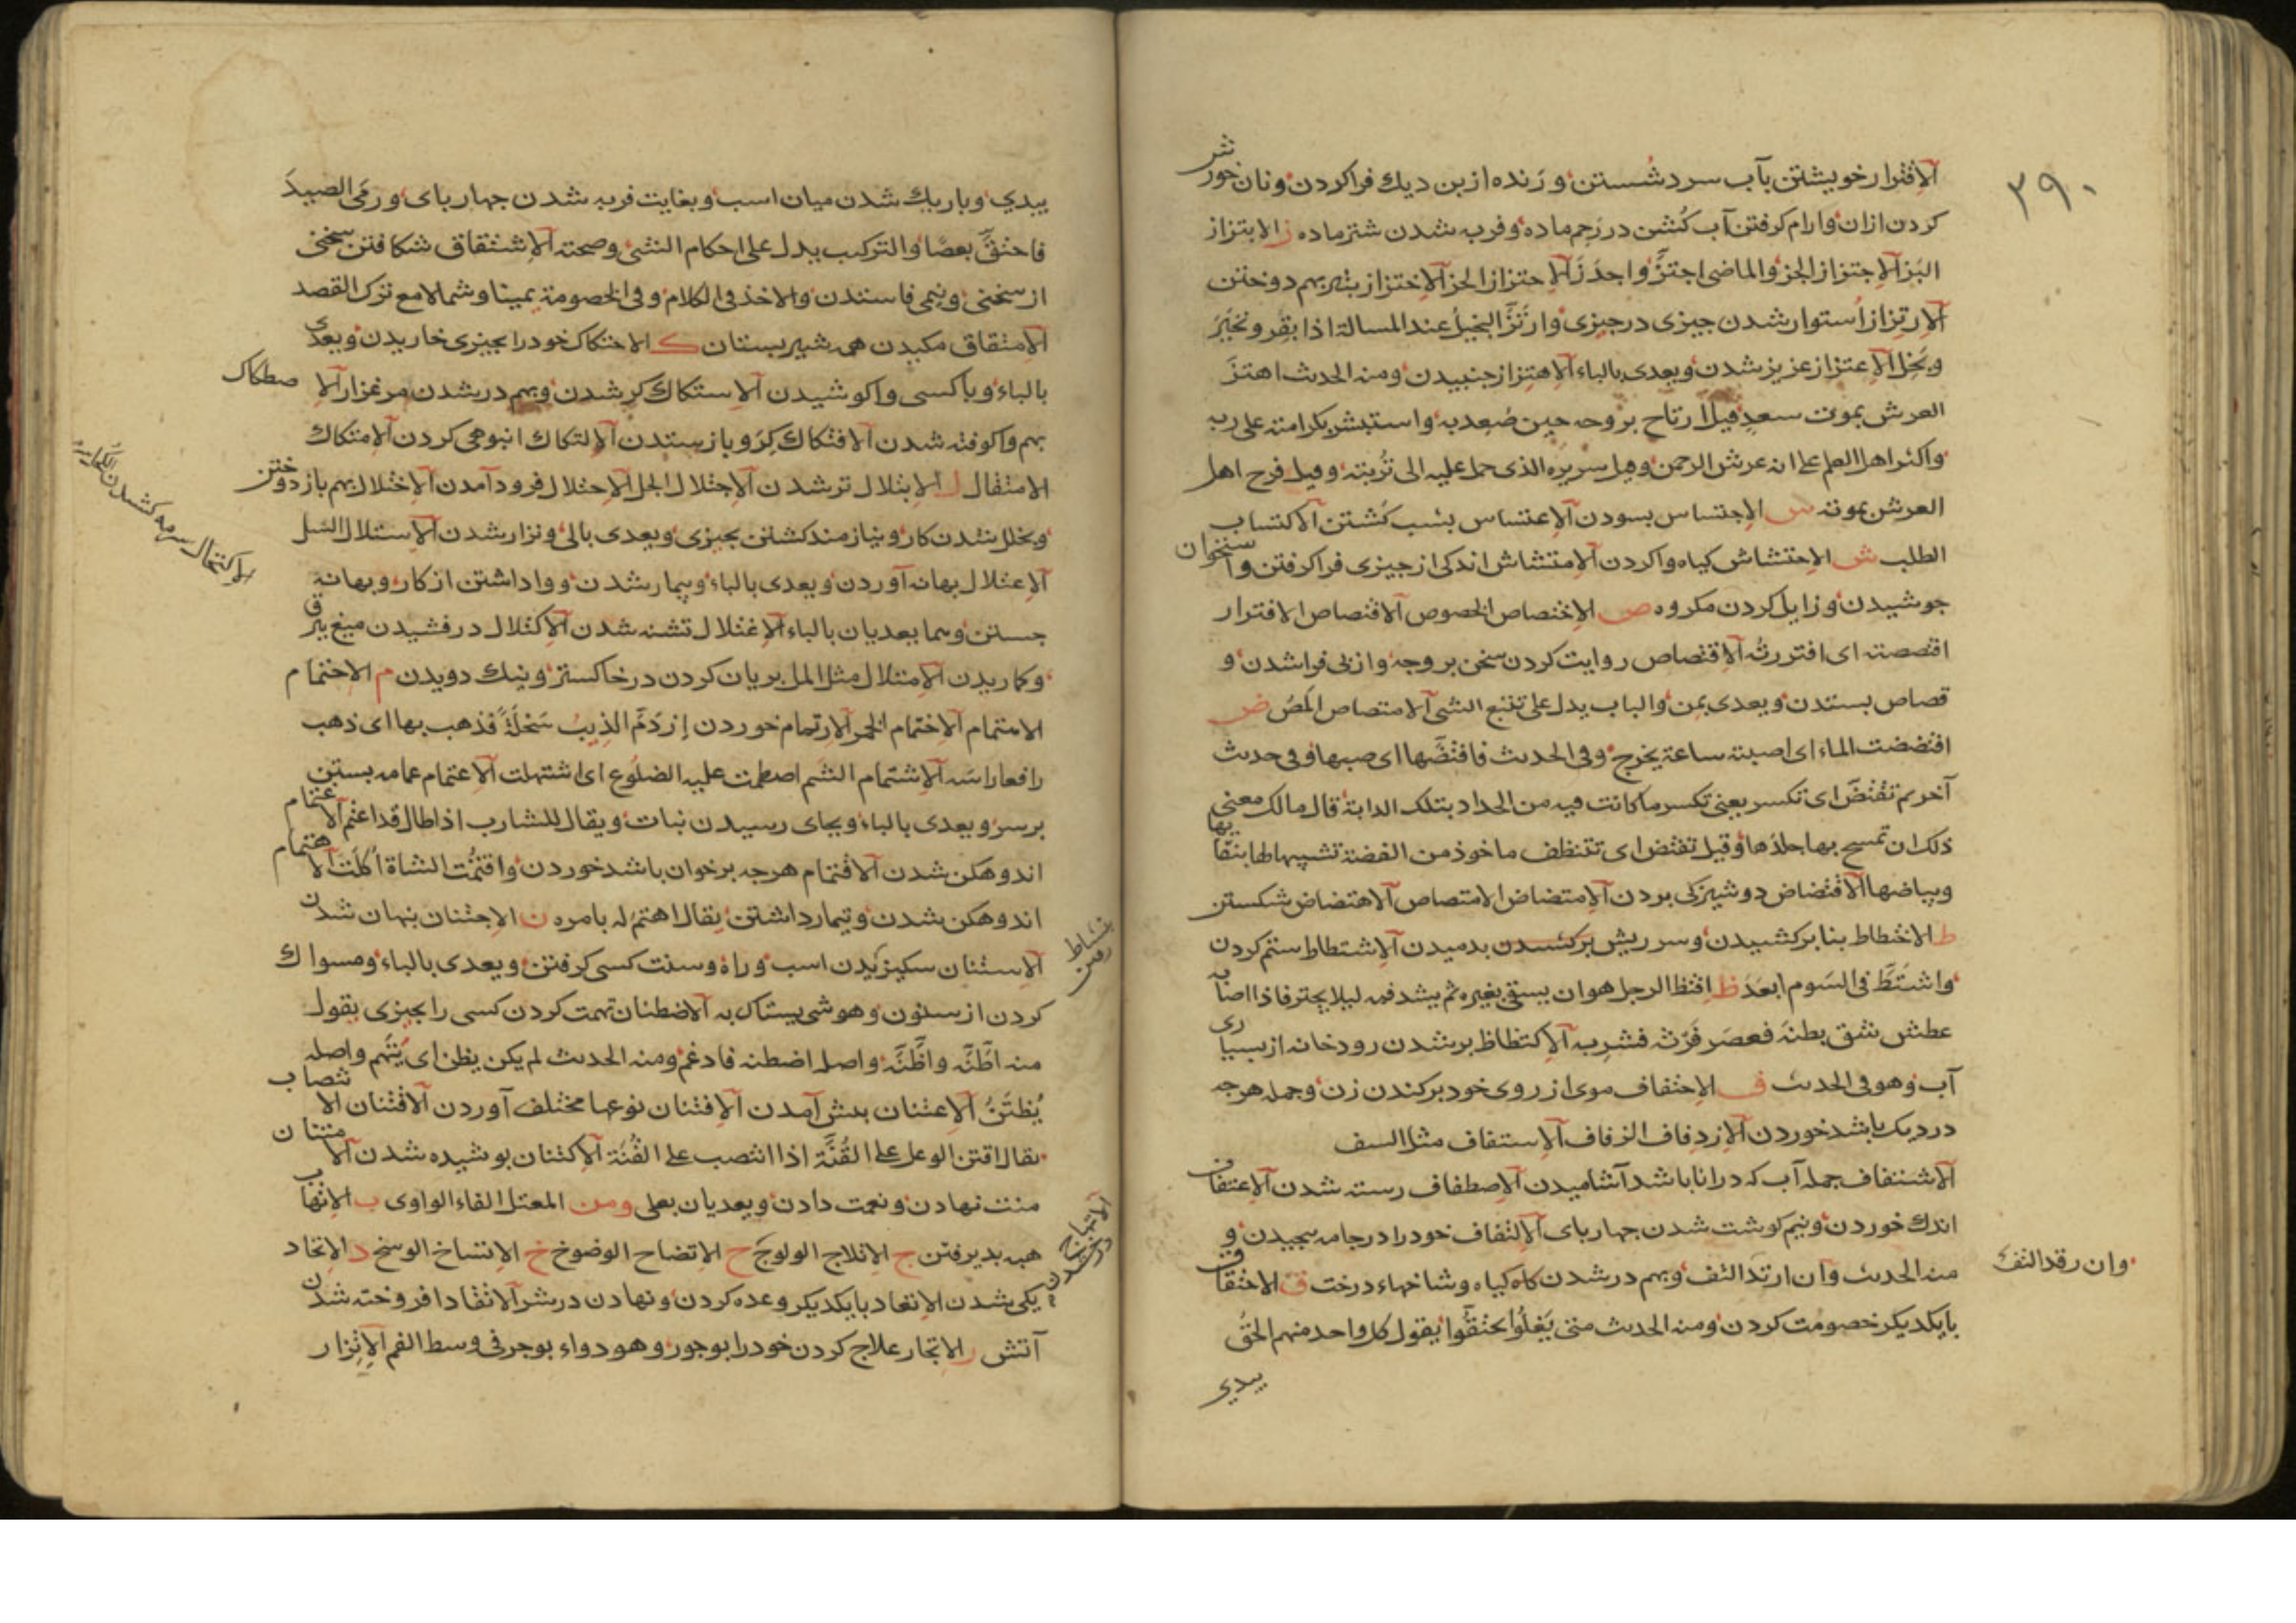 ٣٩٠
الاقترار خویشتن بآب سرد شستن و رنده از بن دیك فرا کردن و نان خورش تر
کردن ازان و ارام کرفتن آب کشن در رحم ماده و فربه شدن شتر ماده ز الابتزاز
البز الاجتزاز الجز والماضی اجتز واجدز الاحتزاز الحز الاختزاز بتیر بهم دوختن
الارتزاز استوار شدن چیزی در چیزی وارتز البخیل عند المسالة اذا بقی و تحیر
وبخل الاعتزاز عزیز شدن ویعدی بالباء الاهتزاز جنبیدن ومنه الحدیث اهتز
العرش بموت سعد قیل ارتاح بروحه حین صعد به واستبشر بکرامته علی ربه
واکثر اهل العلم علی انه عرش الرحمن وقیل سریره الذی حمل علیه الی تربته وقیل فرح اهل
العرش بموته س الاجتساس بسودن الاعتساس بشب کشتن الاکتساب
الطلب ش الاحتشاش کیاه وا کردن الامتشاش اندکی از چیزی فرا کرفتن وا ستخوان
جوشیدن و زایل کردن مکروه ص الاختصاص الخصوص الاقتصاص الاقترار
اقتصصته ای اقتررته الاقتصاص روایت کردن سخن بر وجه و از پی فرا شدن و
قصاص بستدن ویعدی بمن والباب یدل علی تتبع الشی الامتصاص المص ض
افتضضت الماء ای اصبته ساعة یخرج وفی الحدیث فافتضها ای صبها وفی حدیث
آخر ثم تفتض ای تکسر یعنی تکسر ما کانت فیه من الحداد بتلك الدابة قال مالك معنی
ذلك ان تمسح بها جلدها وقیل تفتض ای تتنظف ماخوذ من الفضة تشبیها لها بنقائها
وبیاضها الافتضاض دوشیزکی بردن الامتضاض الامتصاص الاهتضاض شکستن
ط الاختطاط بنا برکشیدن و سر ریش برکشیدن بدمیدن الاشتطاط ستم کردن
واشتط فی السوم ابعد ظ افتظ الرجل هو ان یسقی بغیره ثم یشد فمه لیلا یجتر فاذا اصابه
عطش شق بطنه فعصر فرثه فشربه الاکتظاظ پر شدن رودخانه از بسیاری
آب وهو فی الحدیث ف الاحتفاف موی از روی خود برکندن زن و جمله هرچه
در دیك باشد خوردن الازدفاف الزفاف الاستفاف مثل السف
الاشتفاف جمله آب که در انا باشد آشامیدن الاصطفاف رسته شدن الاعتفاف
اندك خوردن و نیم کوشت شدن چهار بای الالتفاف خود را در جامه پیچیدن و
منه الحدیث وان ارتد التف و بهم در شدن کاه کیاه و شاخهاء درخت ق الاحتقاق
وان رقد التف
بایکدیکر خصومت کردن ومنه الحدیث متی یغلوا یحتقوا یقول کل واحد منهم الحق
بیدی
بیدی و باریك شدن میان اسب و بغایت فربه شدن چهار بای و رمی الصید
فاحتق بعضا والترکیب یدل علی احکام الشی وصحته الاشتقاق شکافتن سخنی
از سخنی و نیمی فاستدن والاخذ فی الکلام وفی الخصومة یمینا وشمالا مع ترك القصد
الامتقاق مکیدن همه شیر بستان ك الاحتکاك خود را بچیزی خاریدن ویعدی
بالباء و باکسی وا کوشیدن الاستکاك کر شدن و بهم در شدن مرغزار الا صطکاك
بهم وا کوفته شدن الافتکاك کرو باز ستدن الالتکاك انبوهی کردن الامتکاك
الامتقاق ل الابتلال تر شدن الاجتلال الجل الاحتلال فرود آمدن الاختلال بهم باز دوختن
و بخلل شدن کار و نیازمند کشتن بچیزی ویعدی بالی و نزار شدن الاستلال السل
الاعتلال بهانه آوردن ویعدی بالباء و بیمار شدن و واداشتن از کار و بهانه
الاکتحال سرمه کشیدن
جستن وهما یعدیان بالباء الاغتلال تشنه شدن الاکتلال درفشیدن میغ ببرق
و کاریدن الامتلال مثل المل بریان کردن در خاکستر و نیك دویدن م الاحتمام
الامتمام الاختمام الخم الارتمام خوردن ازدم الذیب سخلة فذهب بها ای ذهب
رافعا راسه الاشتمام الشم اصطمت علیه الضلوع ای اشتملت الاعتمام عمامه بستن
بر سر ویعدی بالباء و بجای رسیدن نبات ویقال للشارب اذا طال قد اعتم الاغتمام
اندوهکن شدن الاقتمام هرچه بر خوان باشد خوردن واقتمت الشاة اکلت الاهتمام
اندوهکن شدن و تیمار داشتن یقال اهتم له بامره ن الاجتنان پنهان شدن
الاستنان سکیزیدن اسب و راه و سنت کسی کرفتن ویعدی بالباء و مسواك
بنشاط رفتن
کردن از سنون وهو شی یستاك به الاضطنان تهمت کردن کسی را بچیزی یقول
منه اطنه واظنه واصله اضطنه فادغم ومنه الحدیث لم یکن یظن ای یتهم واصله
یظتن الاعتنان پیش آمدن الافتنان نوعها مختلف آوردن الاقتنان الا نتصاب
یقال اقتن الوعل علی القنة اذا انتصب علی القنة الاکتنان پوشیده شدن الا متنان
منت نهادن و نعمت دادن ویعدیان بعلی ومن المعتل الفاء الواوی ب الاتهاب
هبه بدیرفتن ج الاتلاج الولوج ح الاتضاح الوضوح خ الاتساخ الوسخ د الاتحاد
یکی شدن الاتعاد بایکدیکر وعده کردن و نهادن در شر الاتقاد افروخته شدن
آتش ر الاتجار علاج کردن خود را بوجور وهو دواء یوجر فی وسط الفم الاتزار